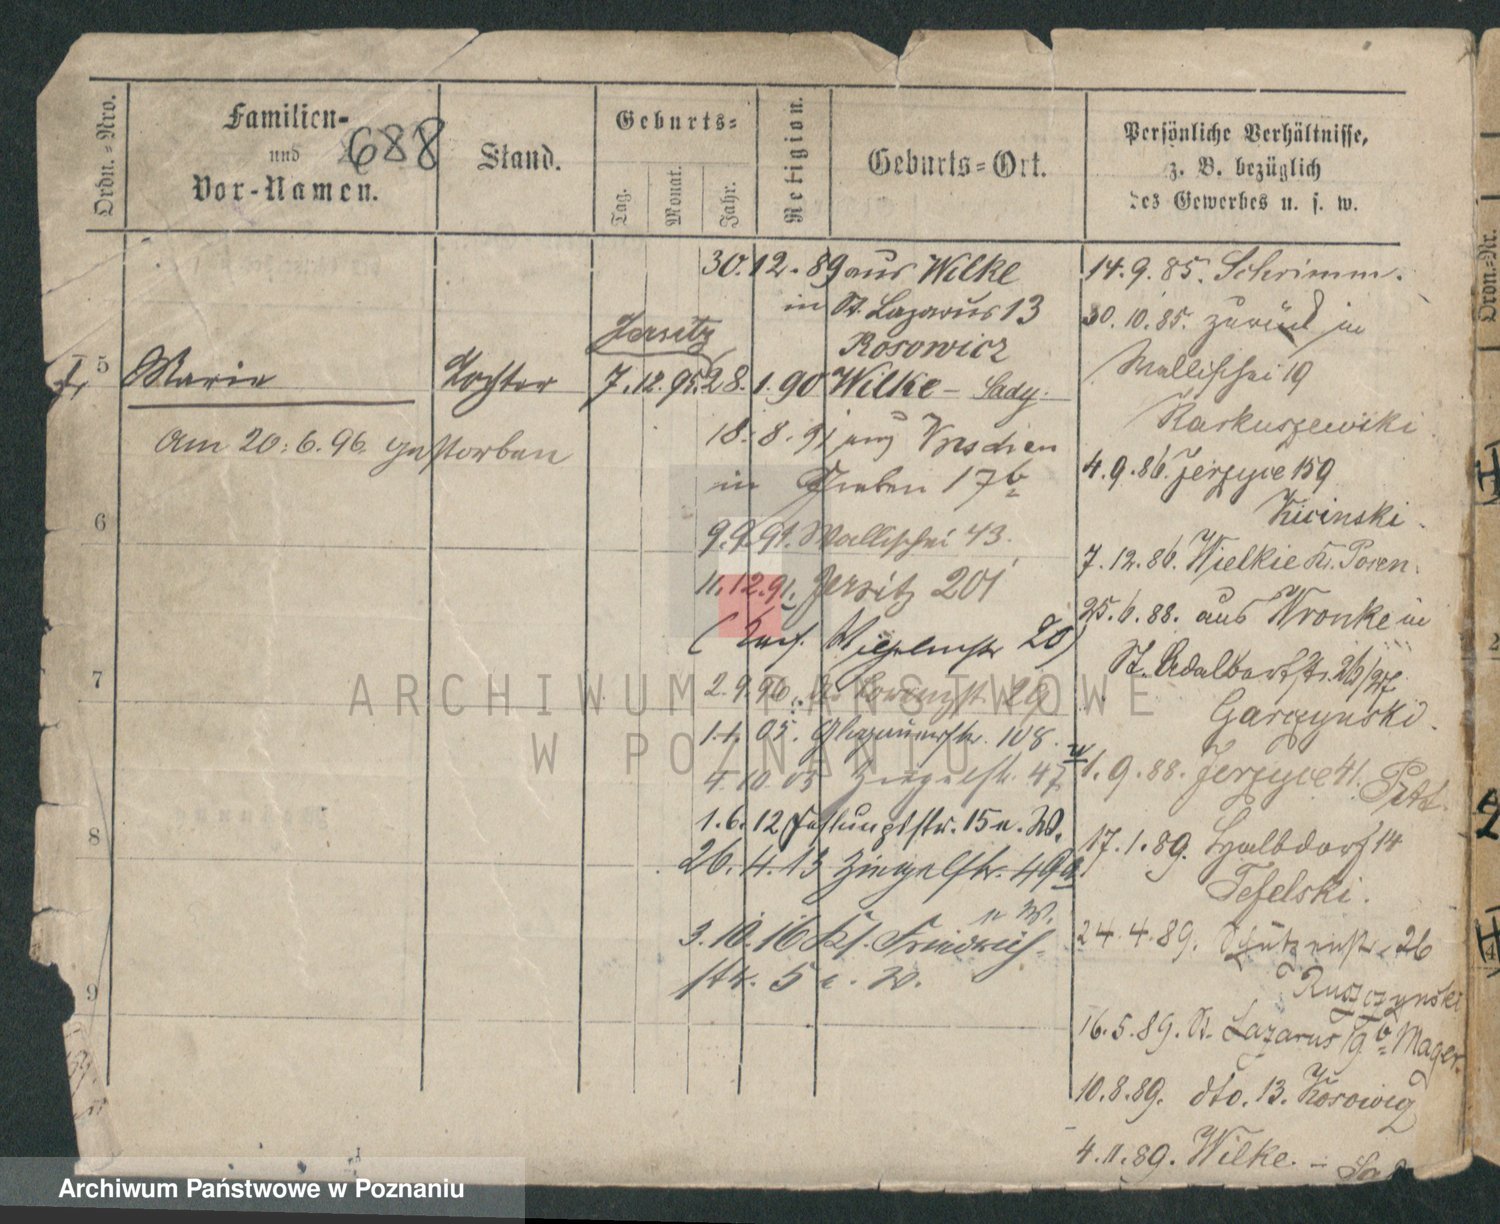 Ordn.=Nro.
Familien-
und
Vor-Namen.
688
Stand.
Geburts=
Tag.
Monat.
Jahr.
Religion.
Geburts=Ort.
Persönliche Verhältnisse,
z. B. bezüglich
des Gewerbes u. s. w.
5
Marie
Tochter
Jersitz
7. 12. 95.
Am 20. 6. 96. gestorben
6
7
8
9
30. 12. 89 aus Wilke
in St. Lazarus 13
Rosowicz
28. 1. 90 Wilke - Sady.
18. 8. 91 aus
in Graben 17b
9. 9. 91. Wallischei 43.
11. 12. 91. Jersitz 201
20)
2. 9. 96. 29
1. 1. 05. Glogauerstr. 108.
4. 10. 05 Ziegelstr. 47
1. 6. 12 15 n. W.
26. 4. 13 Ziegelstr. 49a
n W.
3. 10. 16 Kl. Friedrich-
str. 5 n. W.
14. 9. 85. Schrimm.
30. 10. 85. zurück in
Wallischei 19
Raskuszewiki
4. 9. 86. Jerzyce 159
Kicinski.
7. 12. 86. Wielkie Kr. Posen.
25. 6. 88. aus Wronke in
St. Adalbertstr. 26/27
Garczynski.
1. 9. 88. Jerzyce 41.
17. 1. 89. Halbdorf 14
Tefelski.
24. 4. 89. Schützenstr. 26
Ruszczynski
16. 5. 89. St. Lazarus 19b Mager.
10. 8. 89. dto. 13. Kosowicz
4. 11. 89. Wilke. -
Ordn.=Nr.
ARCHIWUM PAŃSTWOWE
W POZNANIU
Archiwum Państwowe w Poznaniu